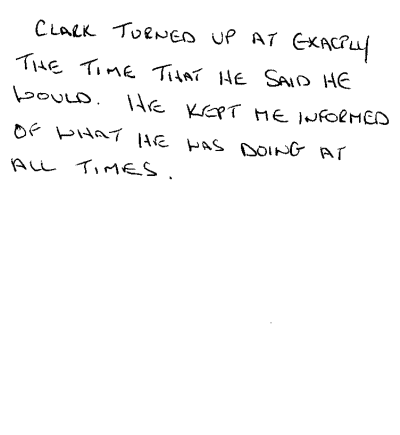 CLARK TURNED UP AT EXACTLY
THE TIME THAT HE SAID HE
WOULD. HE KEPT ME INFORMED
OF WHAT HE WAS DOING AT
ALL TIMES.